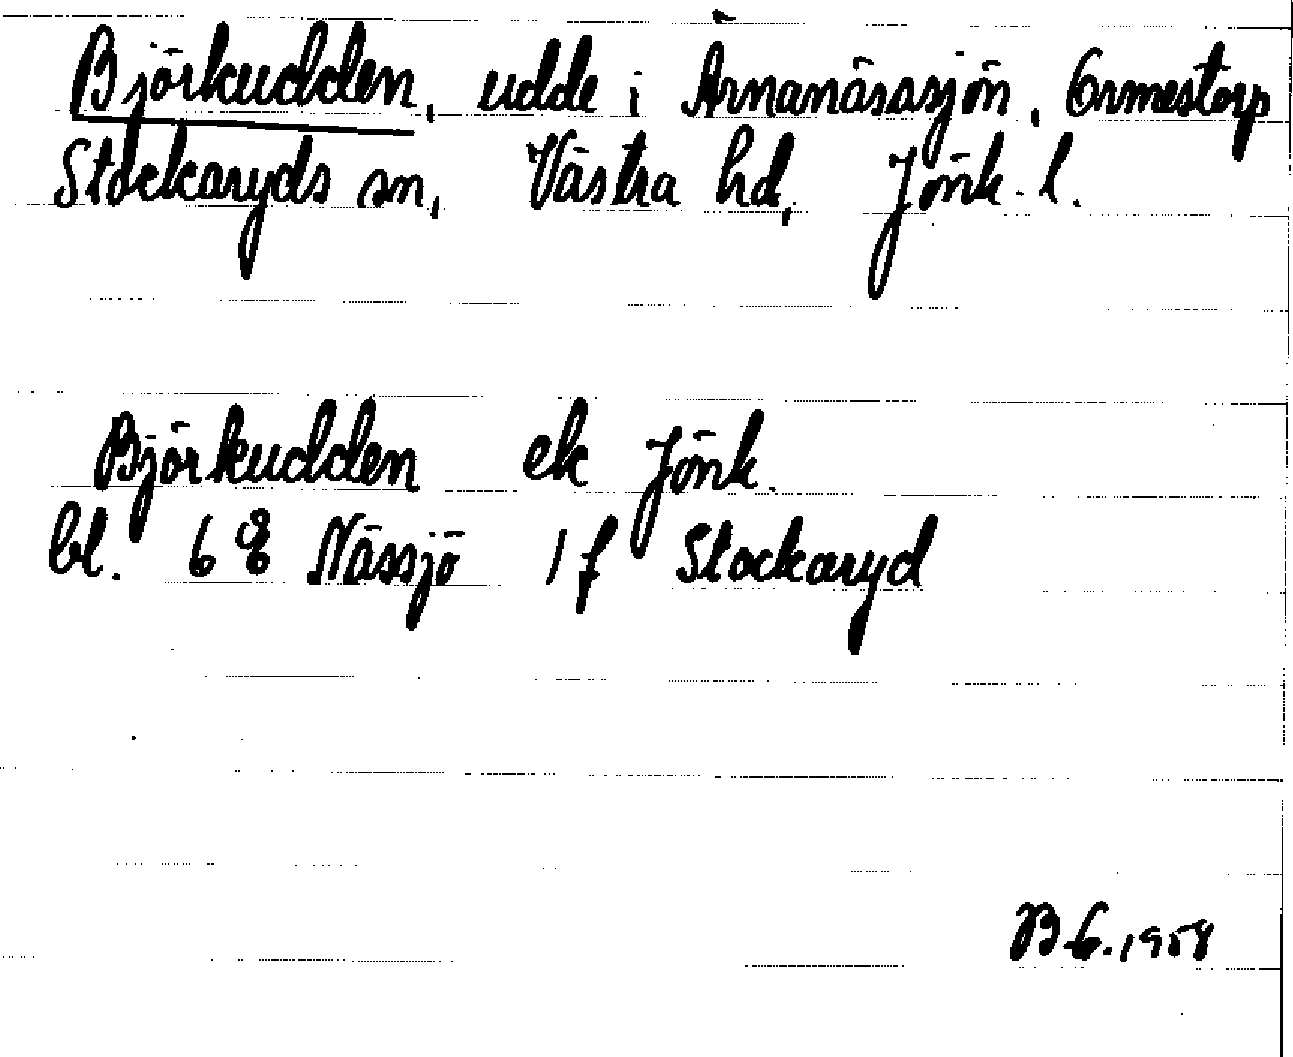 Björkudden, udde i Ärnanäsasjön, Ormestorp
Stockaryds sn, Västra hd, Jönk. l.
Björkudden ek Jönk.
bl. 6 8 Nässjö 1 f Stockaryd
B E. 1958